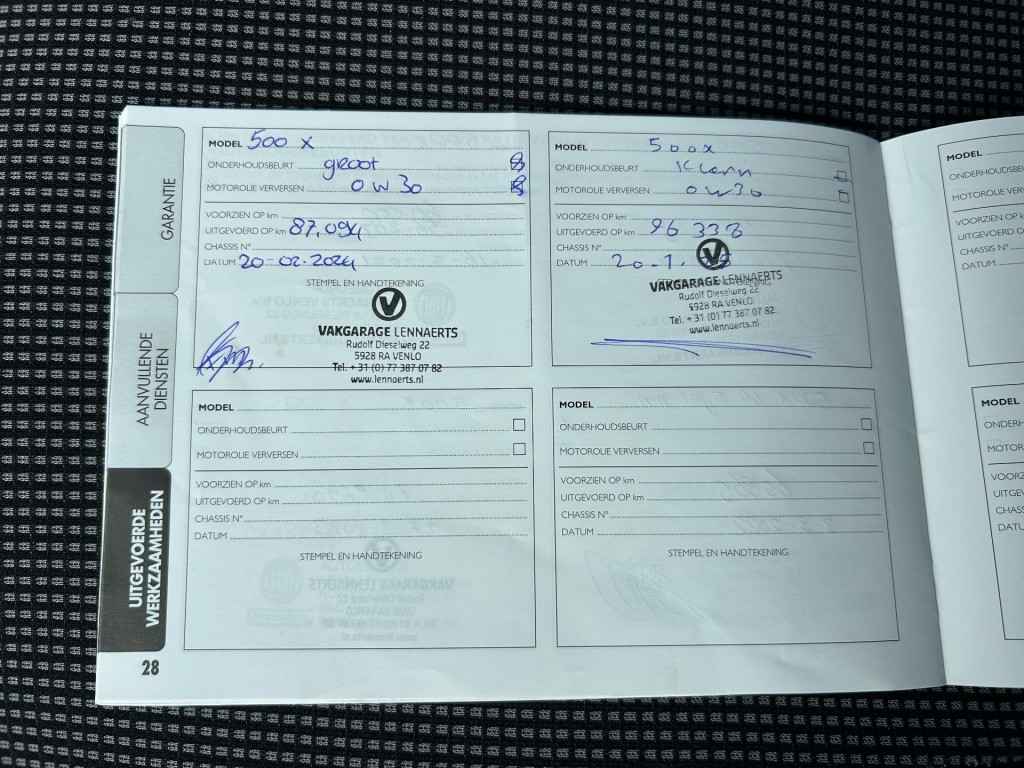 GARANTIE
AANVULLENDE
DIENSTEN
UITGEVOERDE
WERKZAAMHEDEN
28
MODEL 500 X
ONDERHOUDSBEURT groot
MOTOROLIE VERVERSEN 0W30
VOORZIEN OP km
UITGEVOERD OP km 87.094
CHASSIS N°
DATUM 20-02-2024
STEMPEL EN HANDTEKENING
V
VAKGARAGE LENNAERTS
Rudolf Dieselweg 22
5928 RA VENLO
Tel. + 31 (0) 77 387 07 82
www.lennaerts.nl
MODEL 500x
ONDERHOUDSBEURT
MOTOROLIE VERVERSEN 0W30
VOORZIEN OP km
UITGEVOERD OP km 96 338
CHASSIS N°
DATUM 20-1-
V
VAKGARAGE LENNAERTS
Rudolf Dieselweg 22
5928 RA VENLO
Tel. + 31 (0) 77 387 07 82
www.lennaerts.nl
MODEL
ONDERHOUDSBEURT
MOTOROLIE VERVERSEN
VOORZIEN OP km
UITGEVOERD OP km
CHASSIS N°
DATUM
STEMPEL EN HANDTEKENING
MODEL
ONDERHOUDSBEURT
MOTOROLIE VERVERSEN
VOORZIEN OP km
UITGEVOERD OP km
CHASSIS N°
DATUM
STEMPEL EN HANDTEKENING
MODEL
ONDERHOUDSB
MOTOROLIE VERV
VOORZIEN OP km
UITGEVOERD OP
CHASSIS N°
DATUM
MODEL
ONDERH
MOTORO
VOORZ
UITGEV
CHASS
DATU